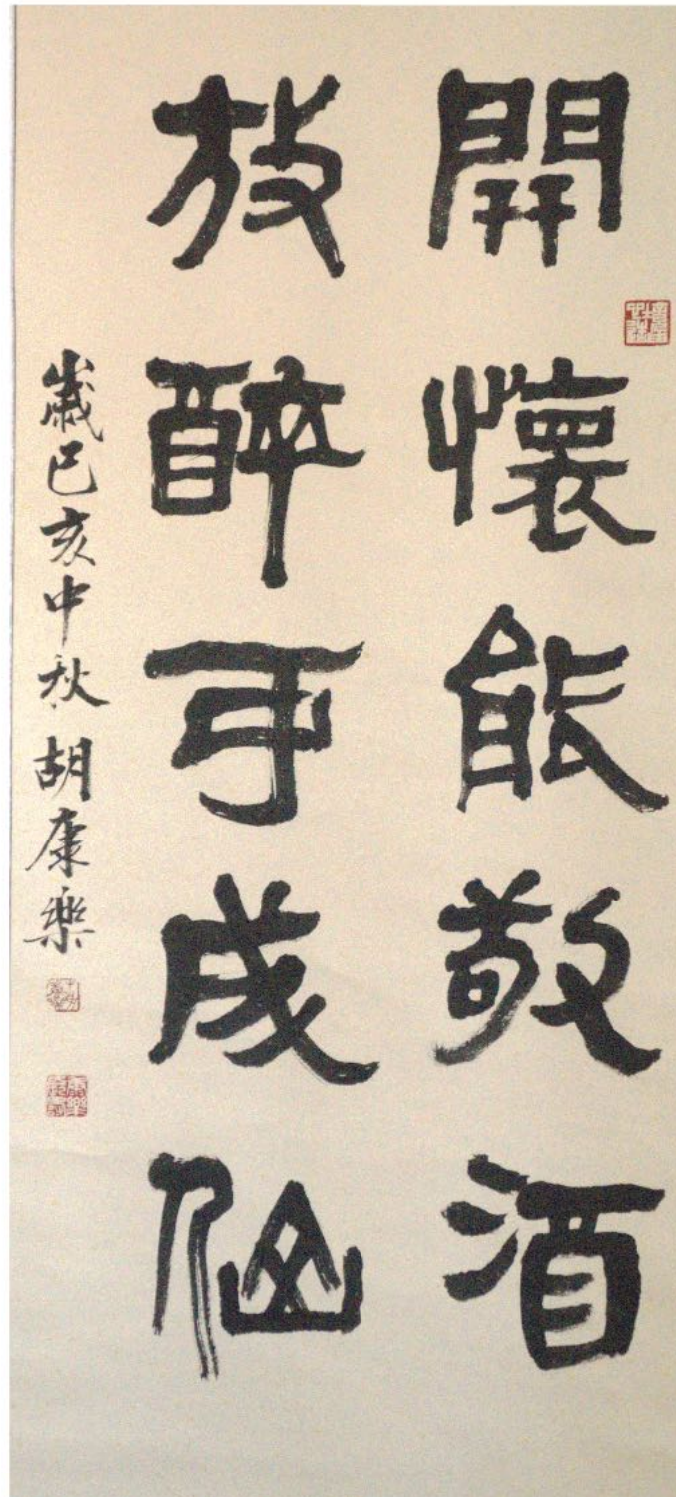 開懷能敬酒
放醉可成仙
歲己亥中秋胡康樂